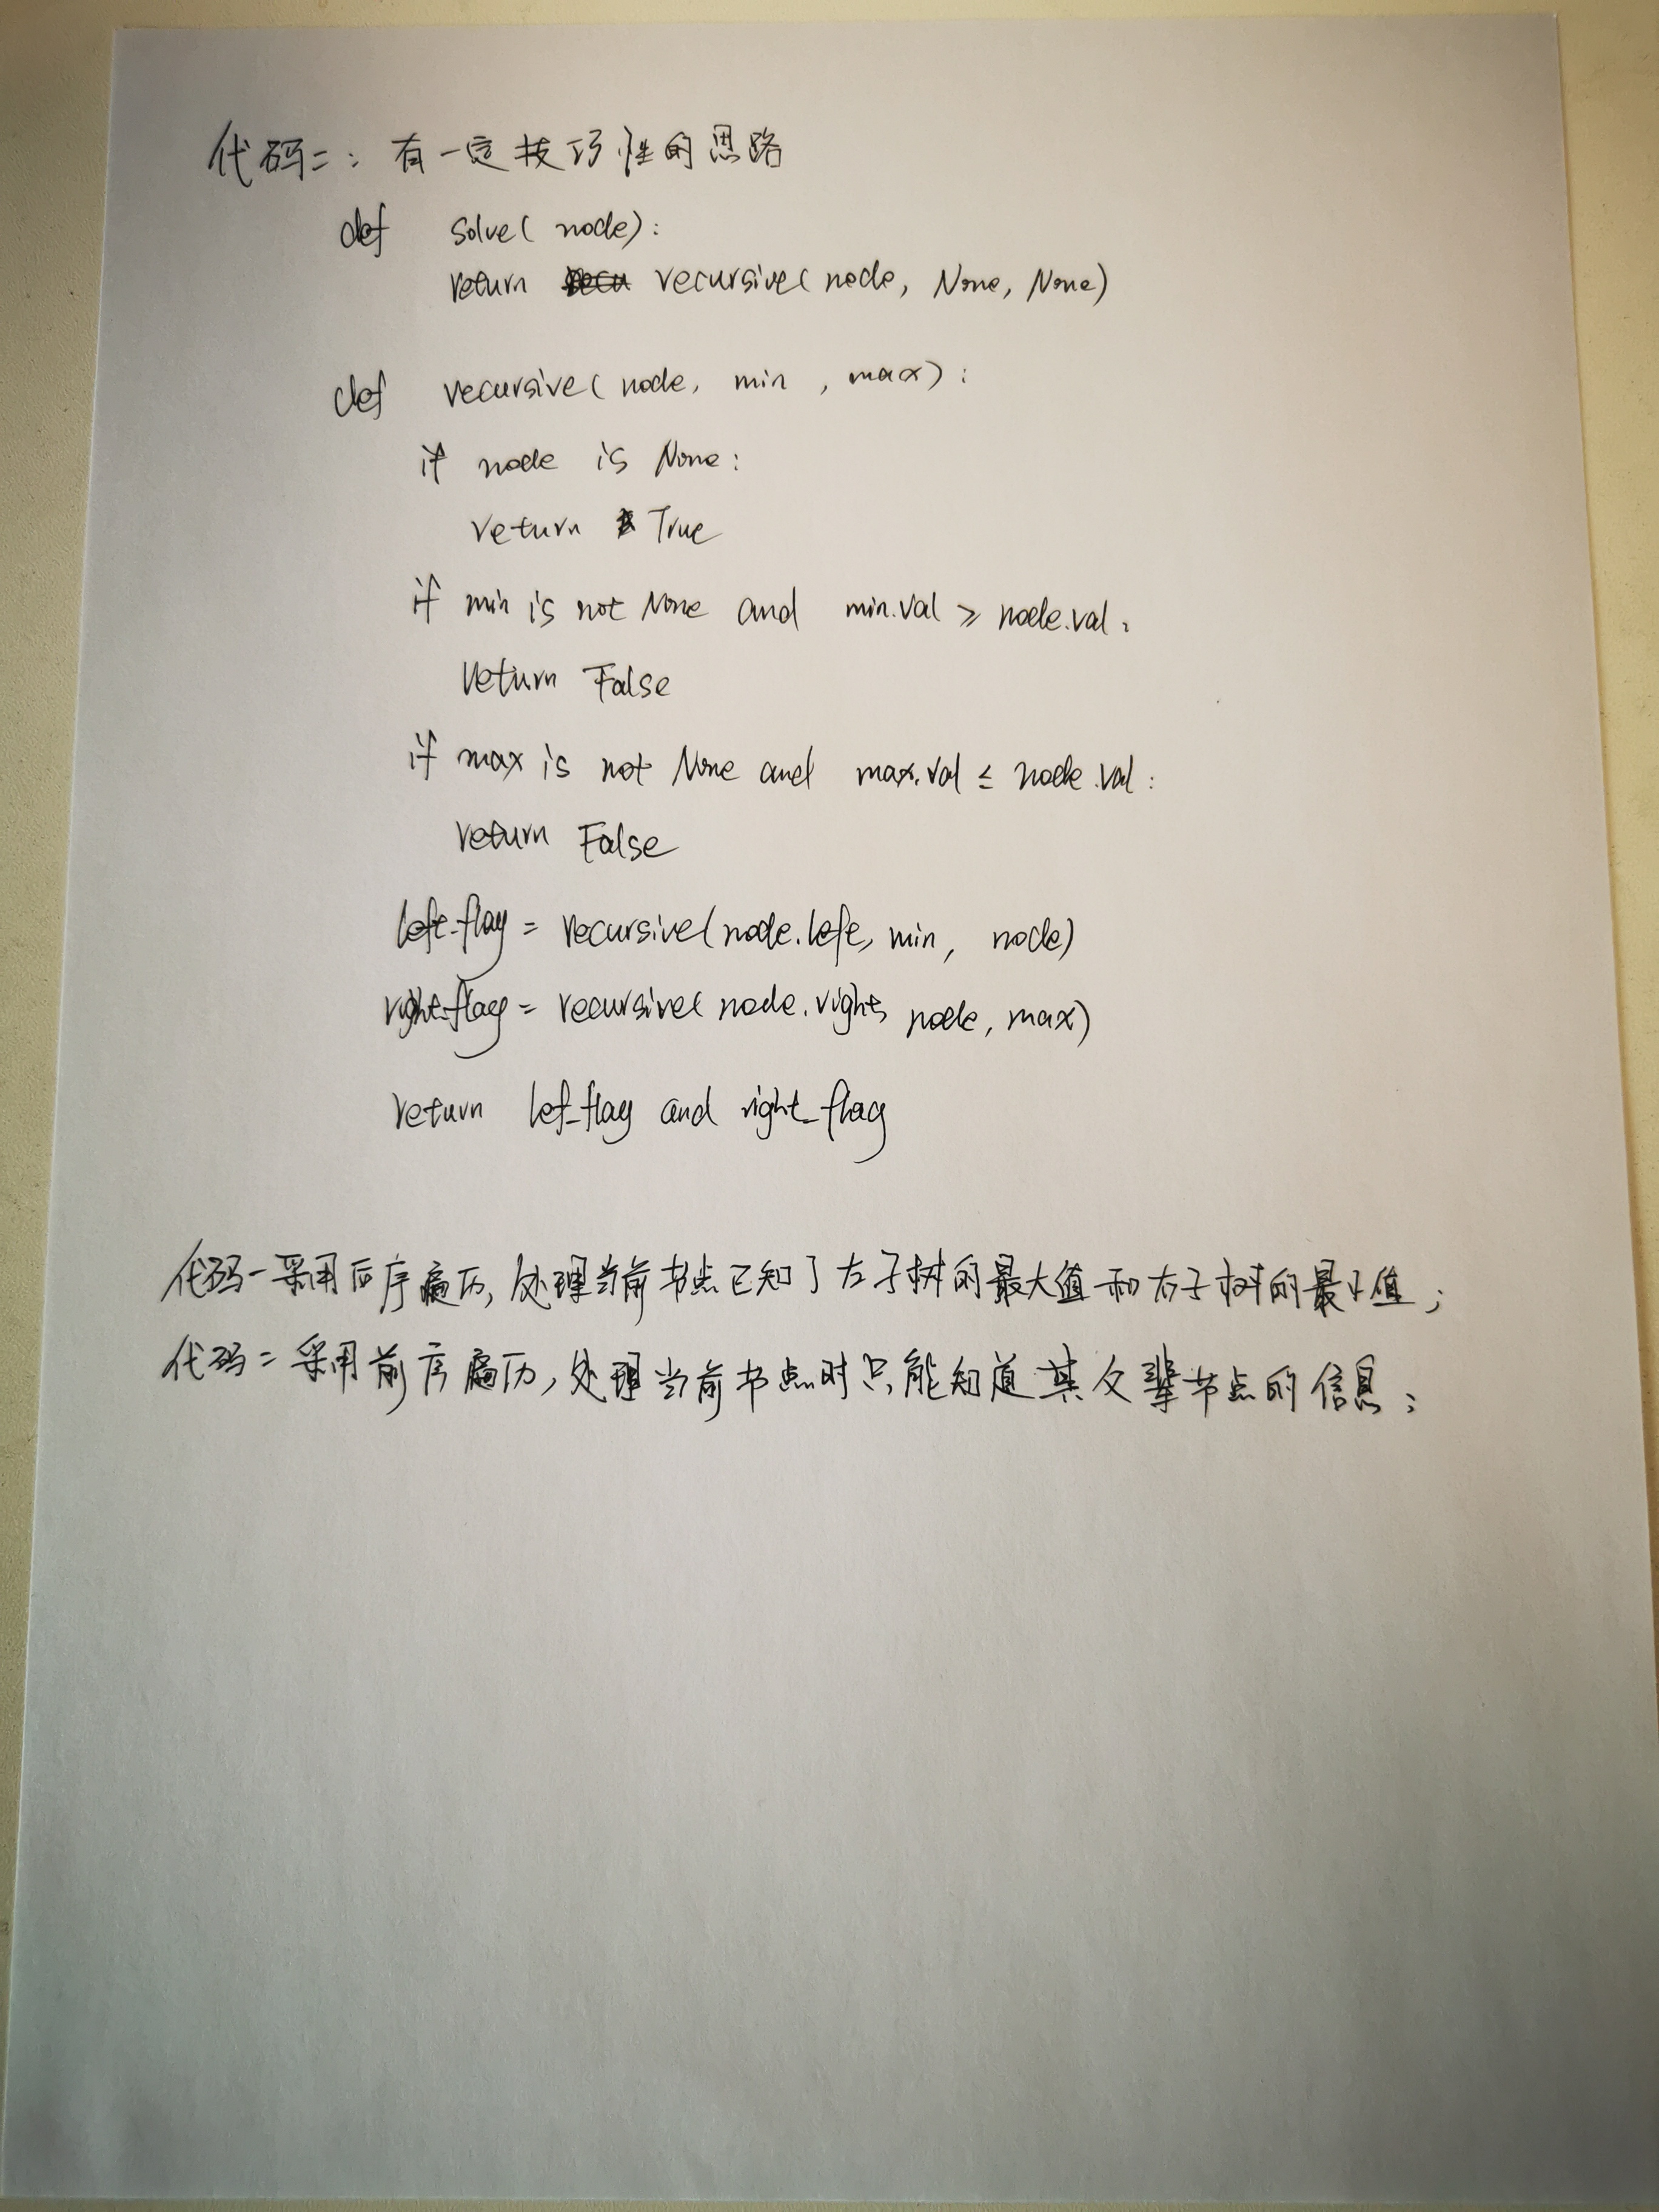 代码二：有一定技巧性的思路
def solve( node):
return recursive( node, None, None)
def recursive( node, min , max) :
if node is None:
return True
if min is not None and min.val ≥ node.val :
return False
if max is not None and max.val ≤ node.val :
return False
left_flag = recursive(node.left, min, node)
right_flag = recursive( node.right, node, max)
return lef_flag and right_flag
代码一采用后序遍历, 处理当前节点已知了左子树的最大值和右子树的最小值；
代码二采用前序遍历, 处理当前节点时只能知道其父辈节点的信息；